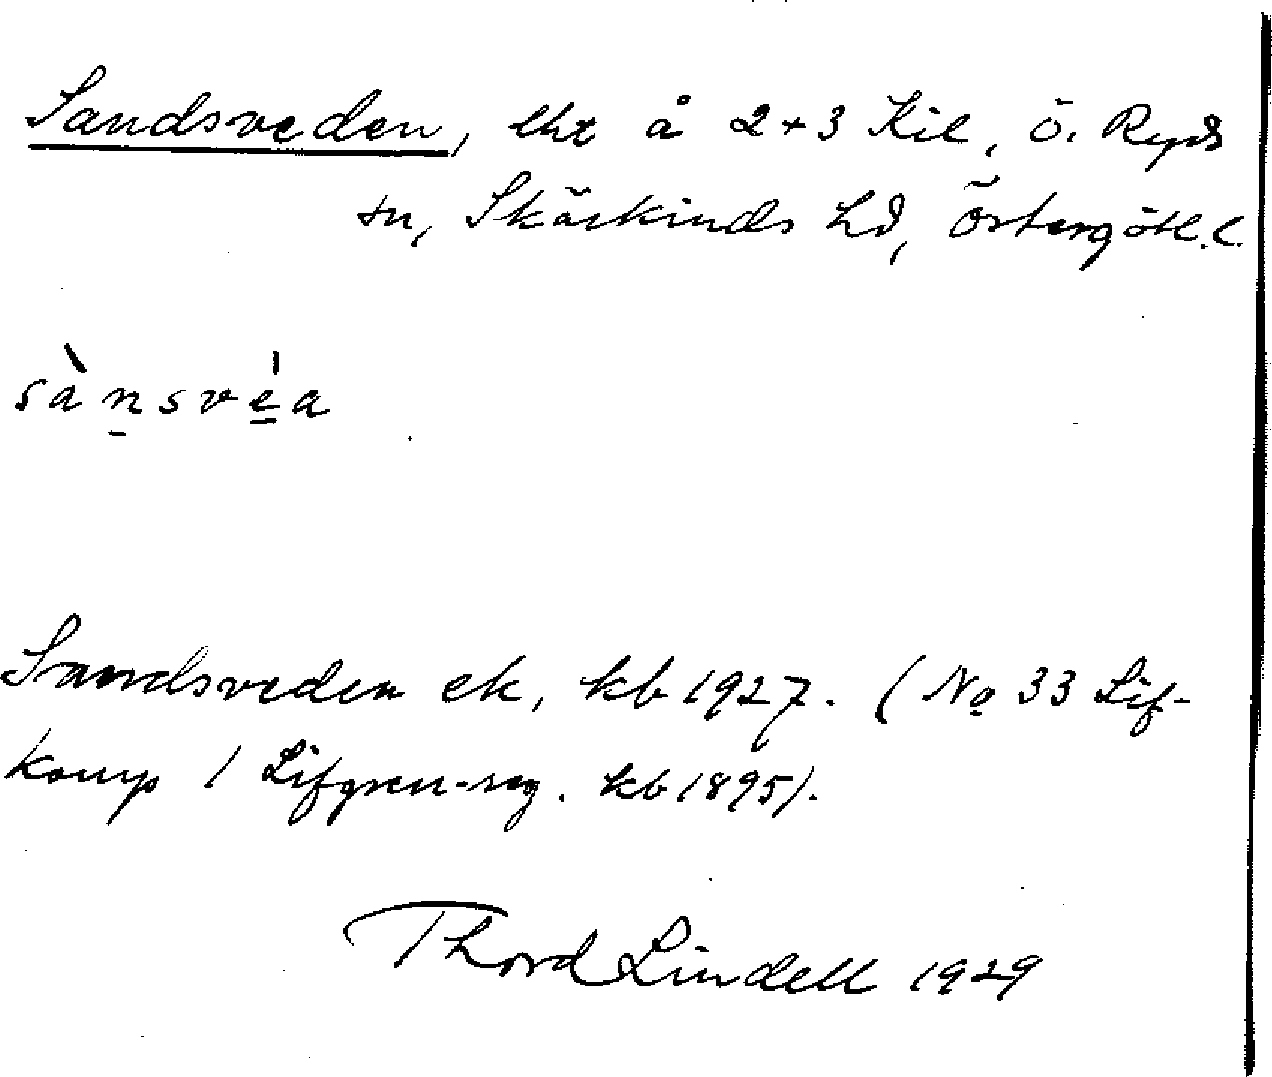 Sandsveden, lht å 2+3 Kil, Ö. Ryds
sn, Skärkinds hd, Östergötl. l.
sànsvéa
Sandsveden ek, kb 1927. (No 33 Lif-
komp / Lifgren-reg. kb 1895).
Thord Lindell 1929